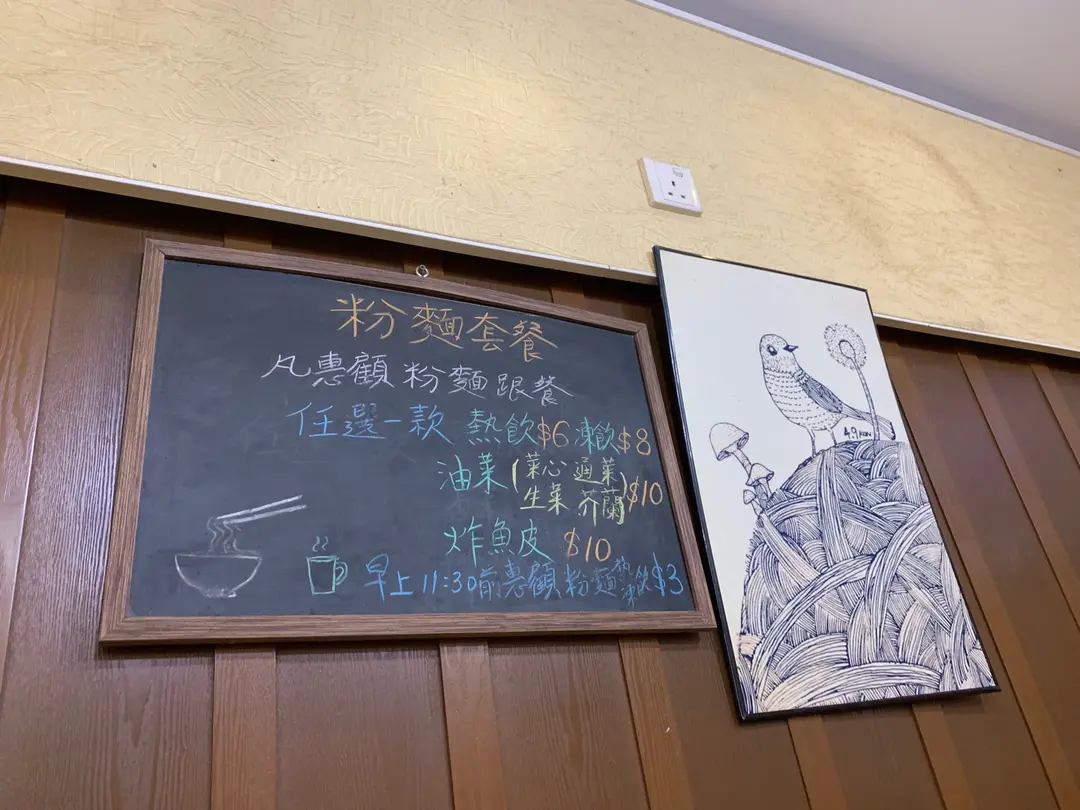 粉麵套餐
凡惠顧粉麵跟餐
任選一款 熱飲$6.凍飲$8
油菜(菜心 通菜 生菜 芥蘭)$10
炸魚皮 $10
早上11:30前惠顧粉麵 凍飲$3
4.9